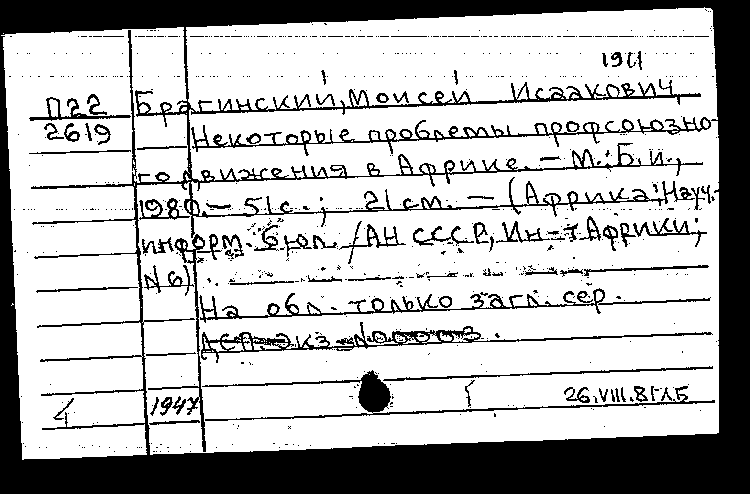 П22 Брагинский, Моисей Исаакович,
2619 Некоторые проблемы профсоюзно-
го движения в Африке. — М.: Б.и.,
1980. — 51с.; 21см. — (Африка: Науч.-
информ. бюл. / АН СССР, Ин-т Африки;
N 6)
На обл. только загл. сер.
ДСП. Экз. N00003.
1947 26.VIII.81